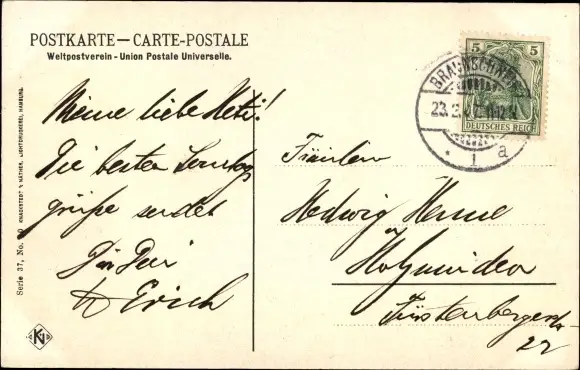 POSTKARTE — CARTE-POSTALE
Weltpostverein - Union Postale Universelle.
Meine liebe Heti!
Die besten Sonntags
grüße sendet
Dir Dein
Erich
Fräulein
Hedwig Henne
Holzminden
Fürstenbergerstr
22
5 5
DEUTSCHES REICH
BRAUNSCHWEIG
23.2. 11-12
1 a
Serie 37, No. KNACKSTEDT & NÄTHER, LICHTDRUCKEREI, HAMBURG.